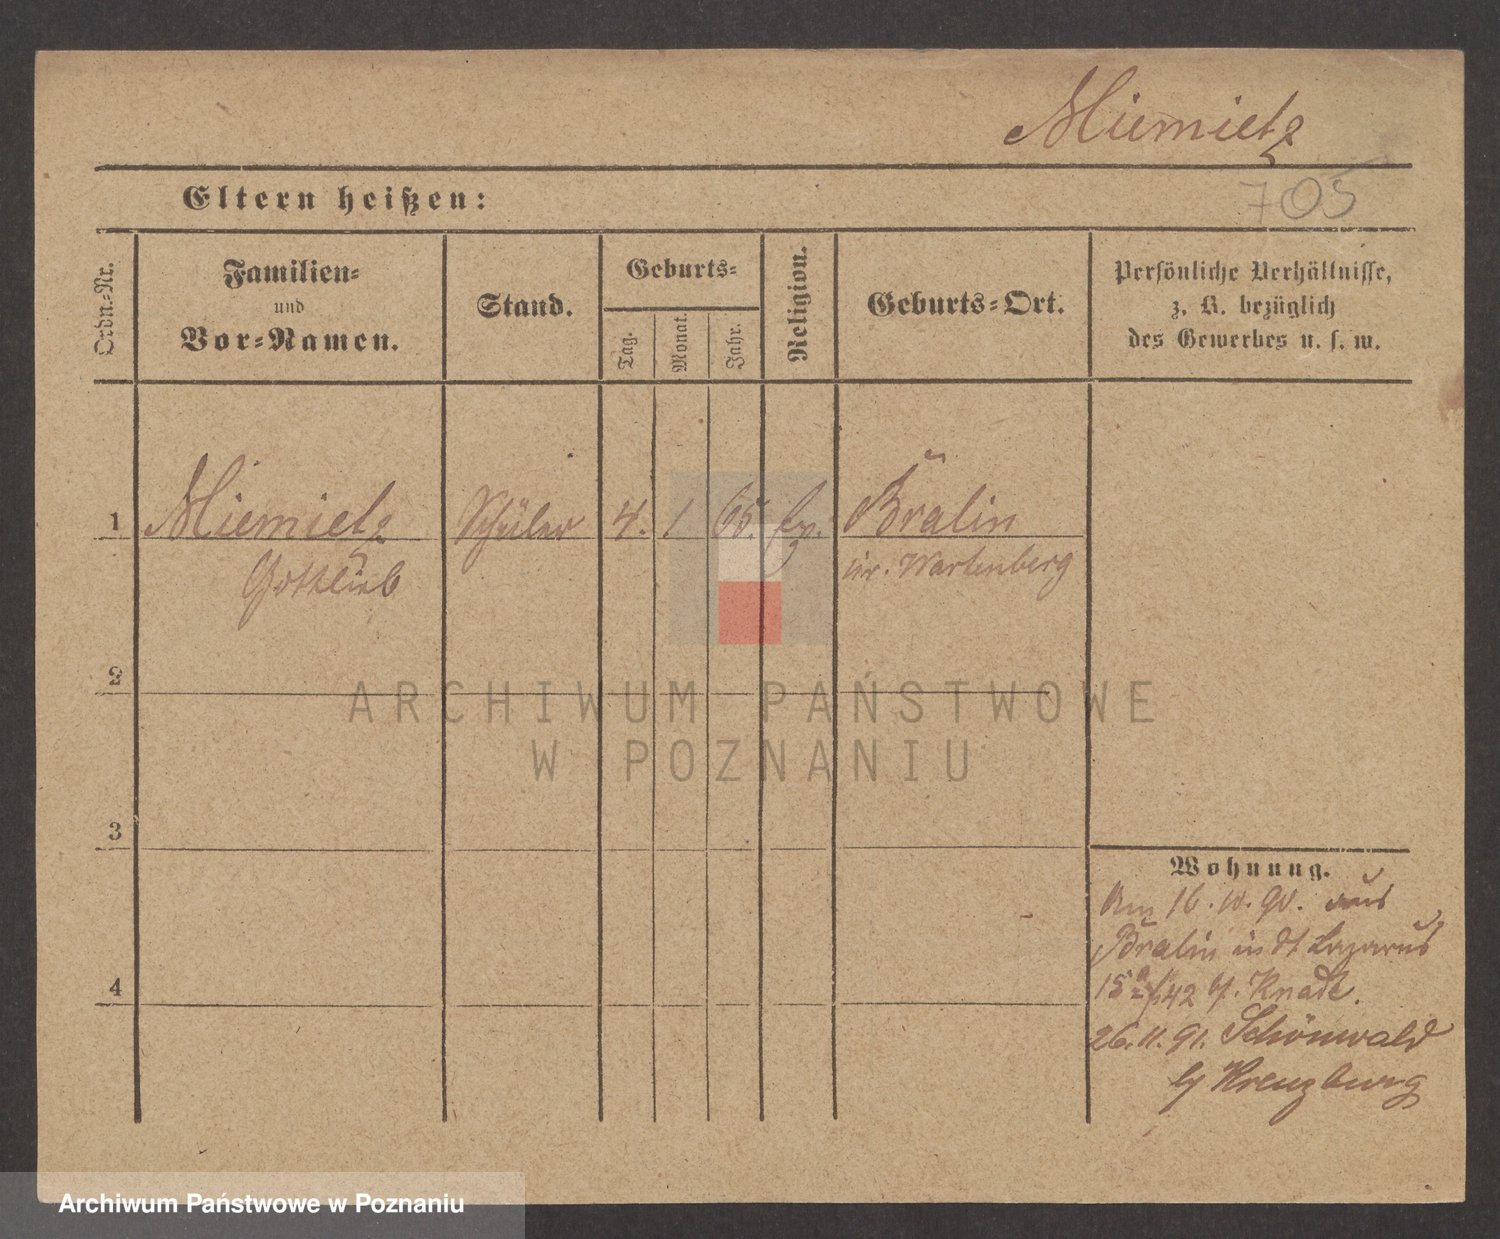 Miemietz
Eltern heißen:
705
Ordn.-Nr.
Familien-
und
Vor-Namen.
Stand.
Geburts-
Tag.
Monat.
Jahr.
Religion.
Geburts-Ort.
Persönliche Verhältnisse,
z. B. bezüglich
des Gewerbes u. s. w.
1 Miemietz Schüler 4. 1 65. Ev. Bralin
Gottlieb Kr. Wartenberg
2
3
4
Wohnung.
Am 16. 10. 90. aus
Bralin in St Lazarus
15 42 b/. Knade.
26. 11. 91. Schönwald
b/ Kreuzburg
ARCHIWUM PAŃSTWOWE
W POZNANIU
Archiwum Państwowe w Poznaniu